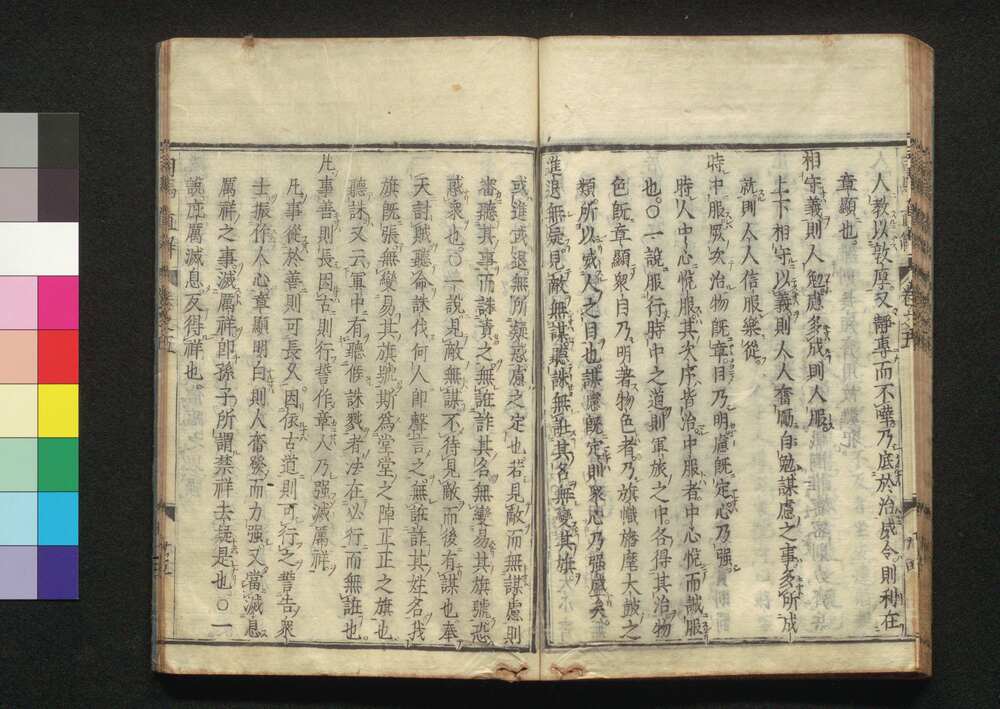 人教以敦厚又靜專而不嘩乃底於治成令則利在
章顯也
相守義則人勉慮多成則人服
上下相守以義則人人奮勵自勉謀慮之事多所成
就則人人信服樂從
時中服厥次治物旣章目乃明慮旣定心乃强
時人中心悅服其次序皆治中服者中心悅而誠服
也○一說服行時中之道則軍旅之中各得其治物
色旣章顯衆目乃明著物色者乃旗幟旌麾大鼓之
類所以威人之目也謀慮旣定則衆心乃强盛矣
進退無疑見敵無謀聽誅無誑其名無變其旗
或進或退無所疑惑慮之定也若見敵而無謀慮則
審聽其事而誅責之無誑詐其名無變易其旗號恐
惑衆也○一說見敵無謀不待見敵而後有謀也奉
天討賊聽命誅伐何人卽聲言之無誑詐其姓名我
旗旣張無變易其旗號斯爲堂堂之陣正正之旗也
聽誅又云軍中有聽候誅戮者法在必行而無誑也
凡事善則長因古則行誓作章人乃强滅厲祥
凡事從於善則可長久因依古道則可行之誓告衆
士振作人心章顯明白則人奮發而力强又當滅息
厲祥之事滅厲祥卽孫子所謂禁祥去疑是也○一
說庶厲滅息反得祥也